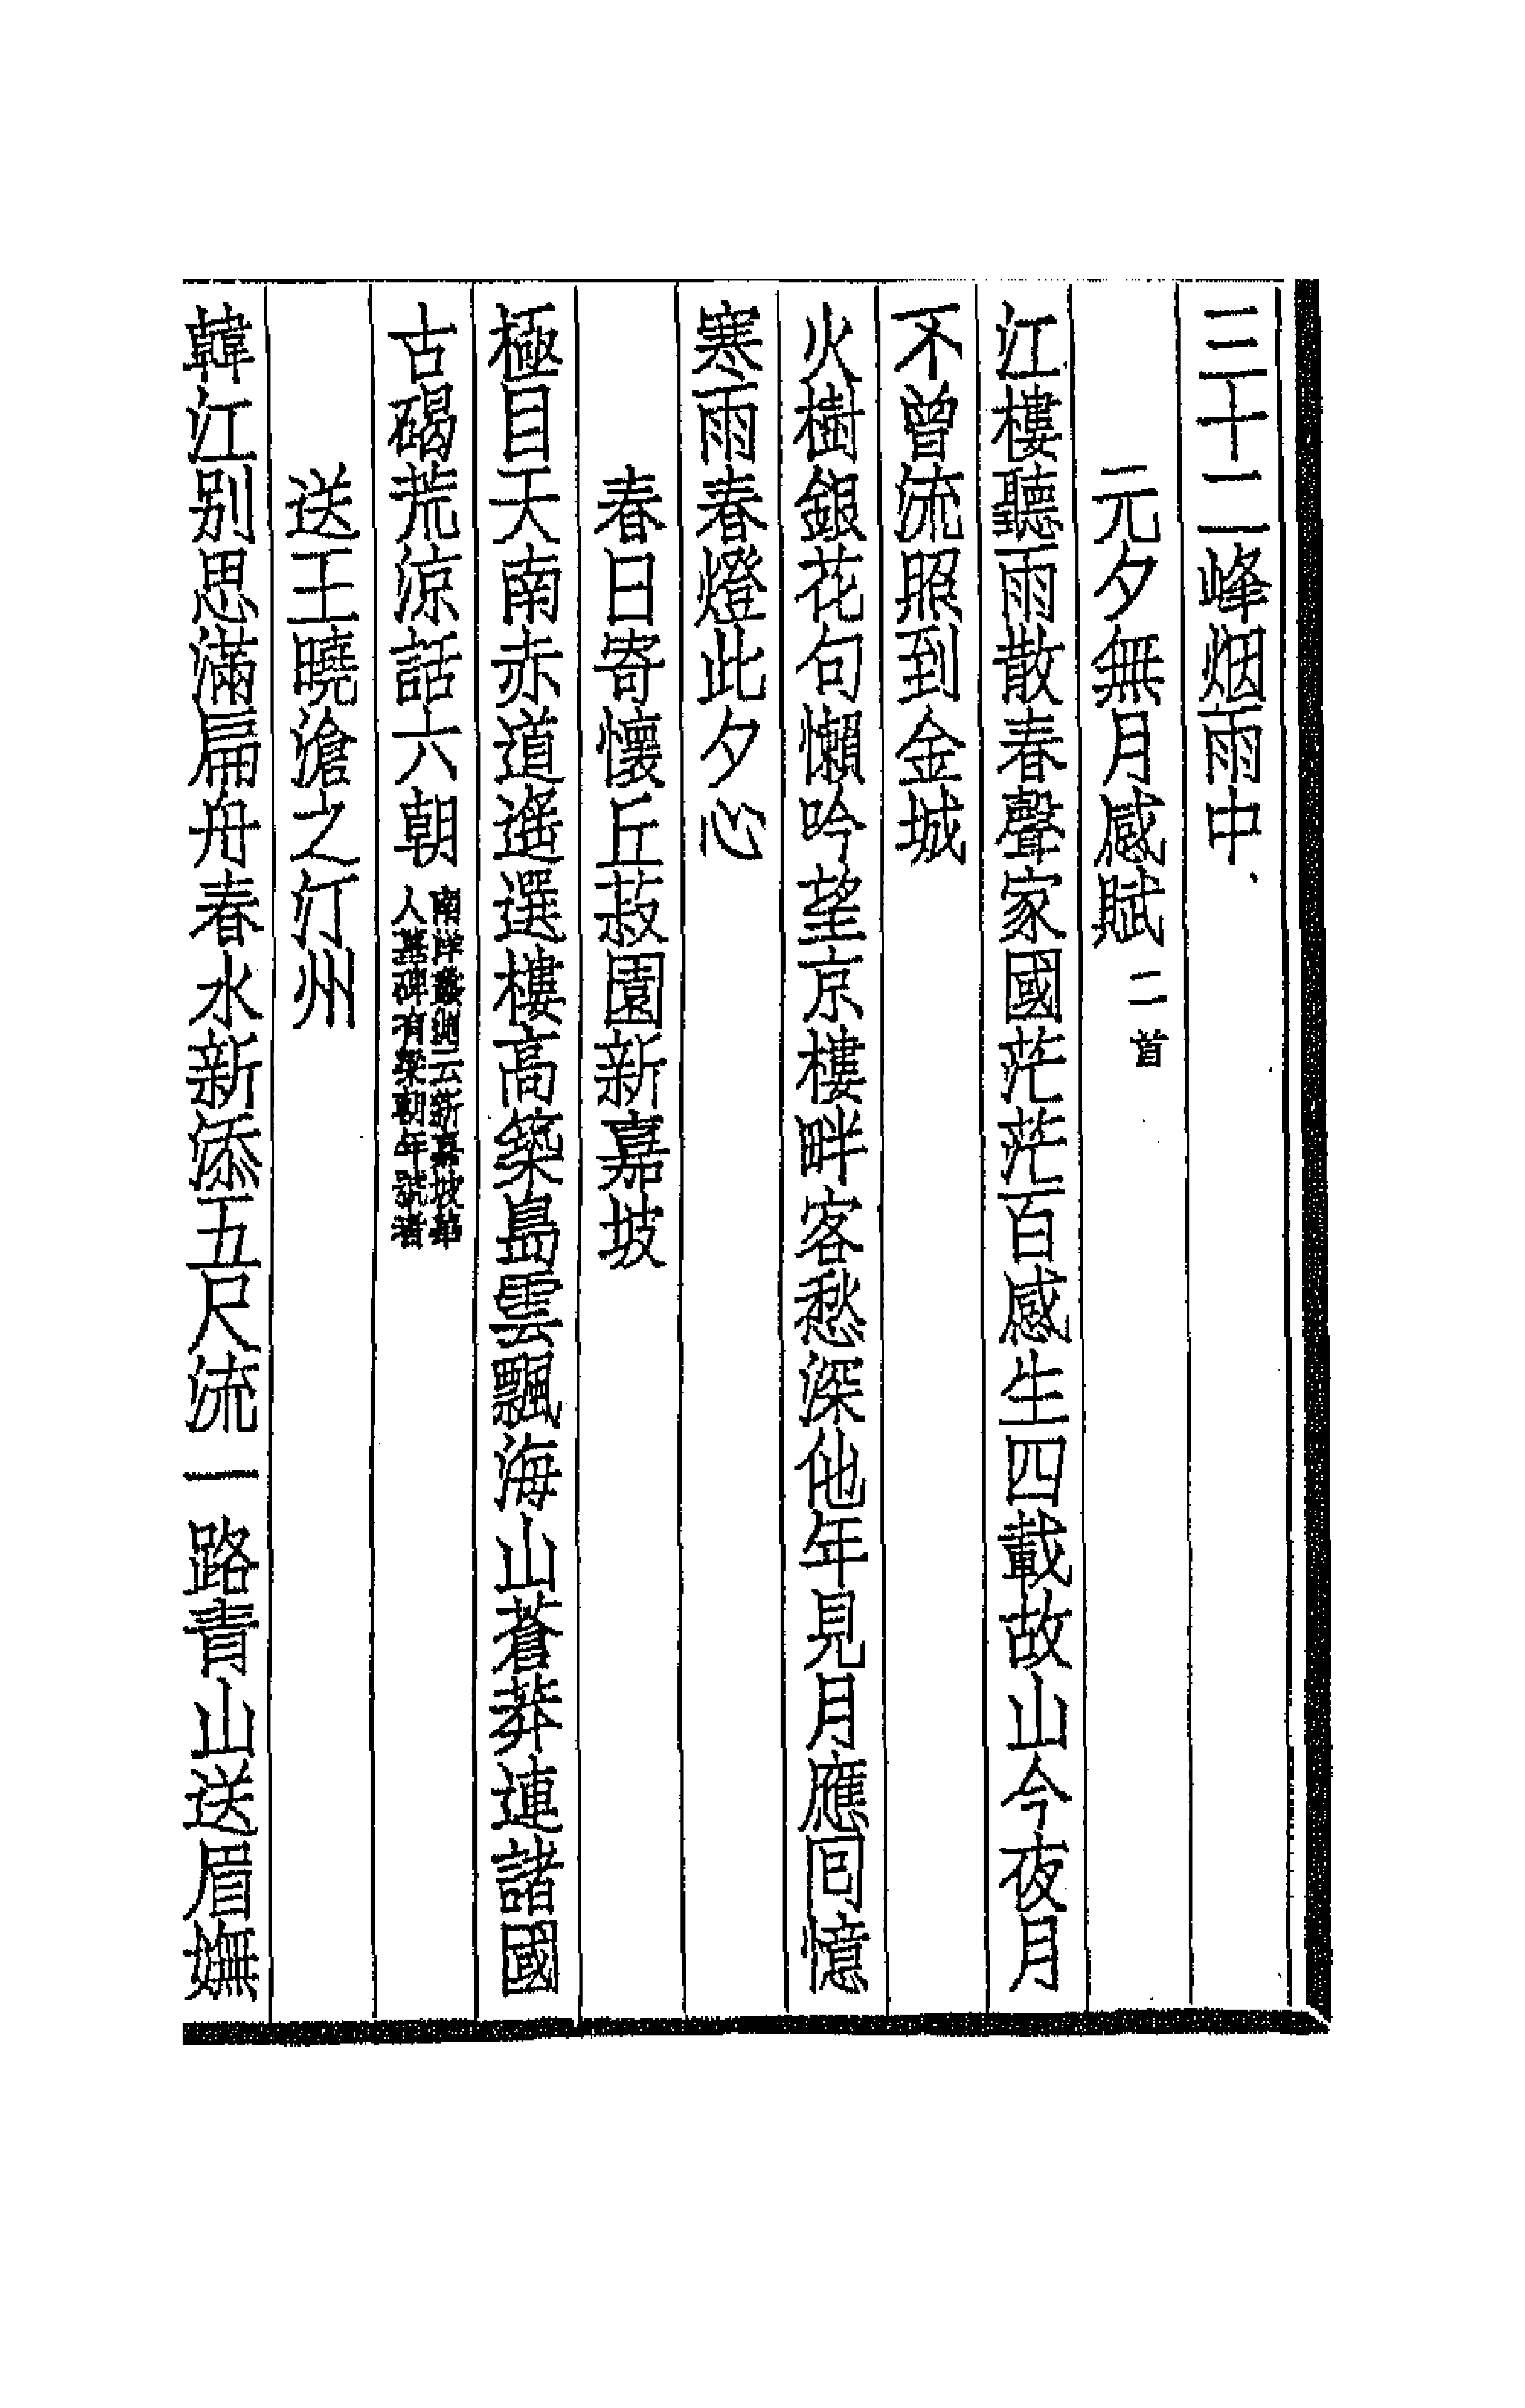 三十二峰烟雨中
元夕無月感賦二首
江樓聽雨散春聲家國茫茫百感生四載故山今夜月
不曾流照到金城
火樹銀花句懶吟望京樓畔客愁深他年見月應回憶
寒雨春燈此夕心
春日寄懷丘菽園新嘉坡
極目天南赤道遙選樓高築島雲飄海山蒼莽連諸國
古碣荒涼話六朝南洋叢談云新嘉坡華
人墓碑有梁朝年號者
送王曉滄之汀州
韓江别思滿扁舟春水新添五尺流一路青山送眉嫵